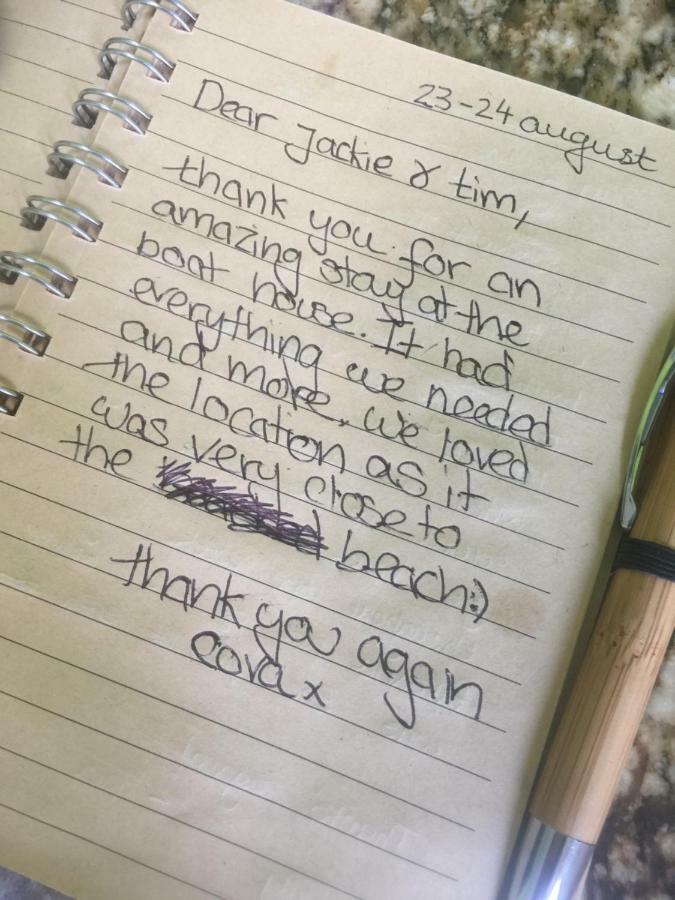 23-24 august
Dear Jackie & tim,
thank you for an
amazing stay at the
boat house. It had
everything we needed
and more. we loved
the location as it
was very close to
the beach:)
thank you again
cora x